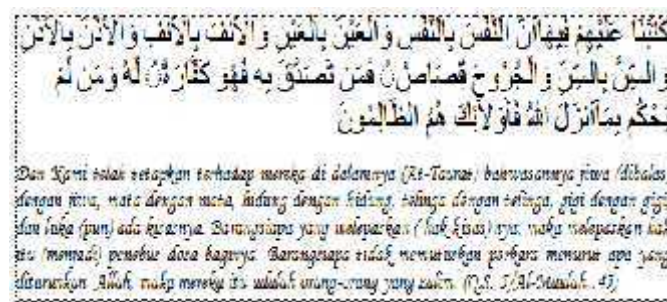 كَتَبْنَا عَلَيْهِمْ فِيهَاآنَّ النَّفْسَ بِالنَّفْسِ وَالْعَيْنَ بِالْعَيْنِ وَالْاَنْفَ بِالْاَنْفِ وَالْاُذُنَ بِالْاُذُنِ
وَالسِّنَّ بِالسِّنِّ وَالْجُرُوحَ قِصَاصٌ فَمَن تَصَدَّقَ بِهِ فَهُوَ كَفَّارَةٌ لَهُ وَمَن لَمْ
يَحْكُم بِمَاآنْزَلَ اللهُ فَأُولَائِكَ هُمُ الظَّالِمُونَ
Dan Kami telah tetapkan terhadap mereka di dalamnya (At-Taurat) bahwasannya jiwa (dibalas)
dengan jiwa, mata dengan mata, hidung dengan hidung, telinga dengan telinga, gigi dengan gigi
dan luka (pun) ada kisasnya. Barangsiapa yang melepaskan (hak kisas) nya, maka melepaskan hak
itu (menjadi) penebus dosa baginya. Barangsiapa tidak memutuskan perkara menurut apa yang
diturunkan Allah, maka mereka itu adalah orang-orang yang zalim. (Q.S. 5/Al-Maidah : 45)